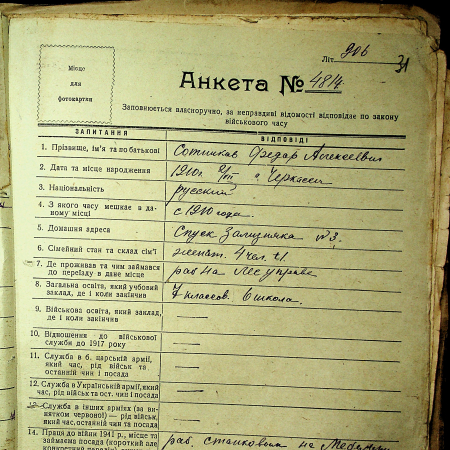 Літ. 906
31
Місце
для
фотокартки
Анкета № 4814
Заповнюється власноручно, за неправдиві відомості відповідає по закону
військового часу
ЗАПИТАННЯ ВІДПОВІДІ
1. Прізвище, ім'я та по батькові Сотников Федор Алексеевич
2. Дата та місце народження 1910г. г. Черкассы
3. Національність русский
4. З якого часу мешкає в даному місці с 1910 года.
5. Домашня адреса Спуск Зализняка №3.
6. Сімейний стан та склад сім'ї женат. 4 чел.
7. Де проживав та чим займався
до переїзду в дане місце раб на
8. Загальна освіта, який учбовий
заклад, де і коли закінчив 7 классов. школа.
9. Військова освіта, який заклад,
де і коли закінчив —
10. Відношення до військової
служби до 1917 року —
11. Служба в б. царській армії,
який час, рід військ та
останній чин і посада —
12. Служба в Українській армії, який
час, рід військ та ост. чин і посада —
13. Служба в інших арміях (за ви-
нятком червоної) — рід військ,
який час, останній чин та посада —
14. Праця до війни 1941 р., місце та
займана посада (короткий але раб. на